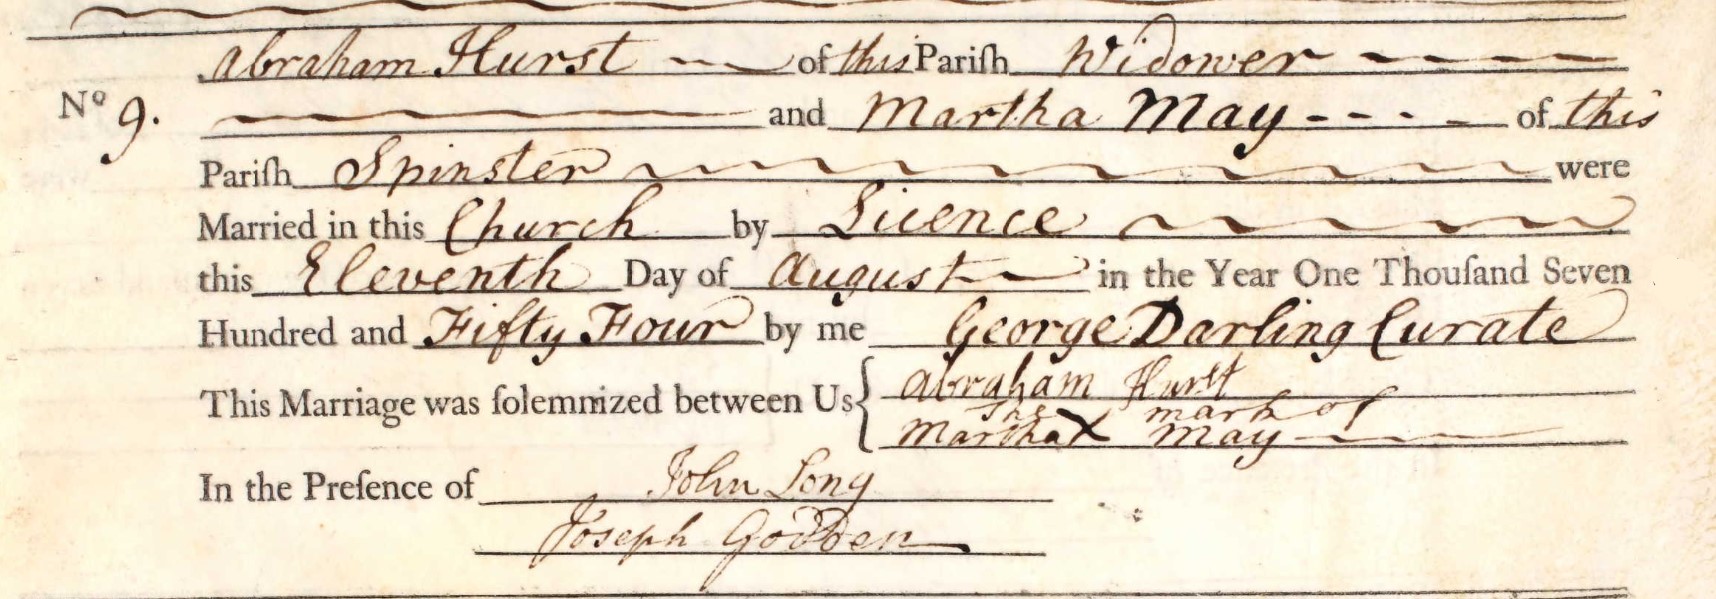 Abraham Hurst of this Pariſh Widower
Nº 9. and Martha May of this
Pariſh Spinster were
Married in this Church by Licence
this Eleventh Day of August in the Year One Thouſand Seven
Hundred and Fifty Four by me George Darling Curate
This Marriage was ſolemnized between Us { Abraham Hurst
The mark of
Martha X May
In the Preſence of John Long
Joseph Godden